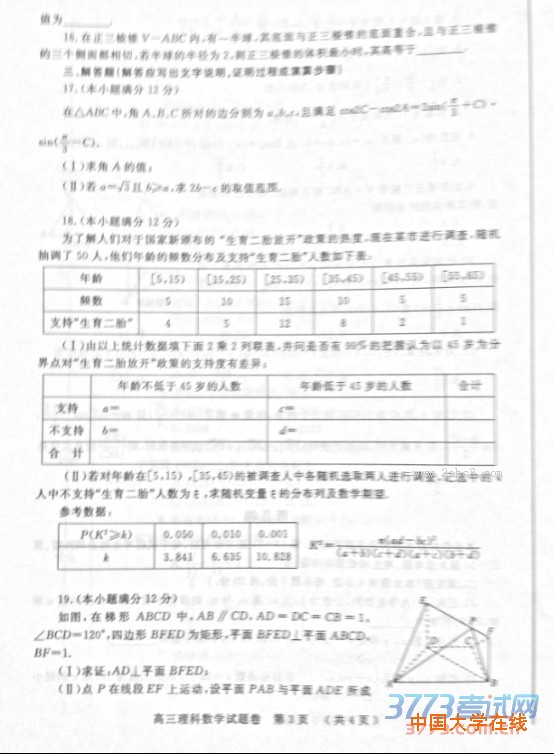 值为
16.在正三棱锥V－ABC内,有一半球,其底面与正三棱锥的底面重合,且与正三棱锥
的三个侧面都相切,若半球的半径为2,则正三棱锥的体积最小时,其高等于
三、解答题(解答应写出文字说明,证明过程或演算步骤)
17.(本小题满分12分)
在△ABC中,角A,B,C所对的边分别为a,b,c,且满足cos2C－cos2A=2sin(π/3+C)·
sin(π/3－C).
(Ⅰ)求角A的值;
(Ⅱ)若a=√3且b≥a,求2b－c的取值范围.
18.(本小题满分12分)
为了解人们对于国家新颁布的“生育二胎放开”政策的热度,现在某市进行调查,随机
抽调了50人,他们年龄的频数分布及支持“生育二胎”人数如下表:
年龄 [5,15) [15,25) [25,35) [35,45) [45,55) [55,65)
频数 5 10 15 10 5 5
支持“生育二胎” 4 5 12 8 2 1
(Ⅰ)由以上统计数据填下面2乘2列联表,并问是否有99%的把握认为以45岁为分
界点对“生育二胎放开”政策的支持度有差异:
年龄不低于45岁的人数 年龄低于45岁的人数 合计
支持 a= c=
不支持 b= d=
合 计
(Ⅱ)若对年龄在[5,15),[35,45)的被调查人中各随机选取两人进行调查,记选中的4
人中不支持“生育二胎”人数为ξ,求随机变量ξ的分布列及数学期望.
参考数据:
P(K²≥k) 0.050 0.010 0.001
k 3.841 6.635 10.828
K²=n(ad－bc)²/(a+b)(c+d)(a+c)(b+d)
19.(本小题满分12分)
如图,在梯形ABCD中,AB∥CD,AD=DC=CB=1,
∠BCD=120°,四边形BFED为矩形,平面BFED⊥平面ABCD,
BF=1.
(Ⅰ)求证:AD⊥平面BFED;
(Ⅱ)点P在线段EF上运动,设平面PAB与平面ADE所成
E
P
F
D
C
A
B
高三理科数学试题卷 第3页 (共4页)
3773考试网
中国大学在线
3773.com.cn